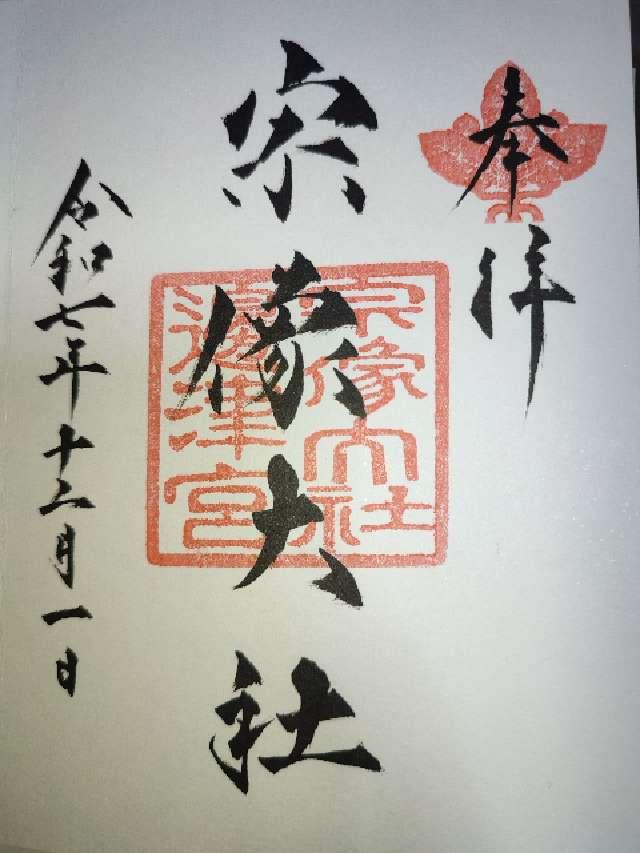 奉拝
宗像大社
宗像大社
邊津宮
令和七年十二月一日